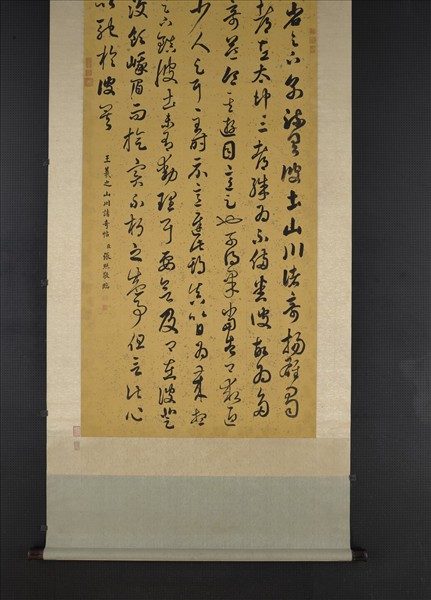 省足下別疏具彼土山川諸奇揚雄蜀
都左太沖三都殊為不備悉彼故為多
奇益令其遊目意足也可得果當告卿求迎
少人足耳至時示意遲此期真以日為歲想
足下鎮彼土未有動理耳要欲及卿在彼登
汶領峨眉而旋實不朽之盛事但言此心
以馳於彼矣
王羲之山川諸奇帖 臣張照敬臨